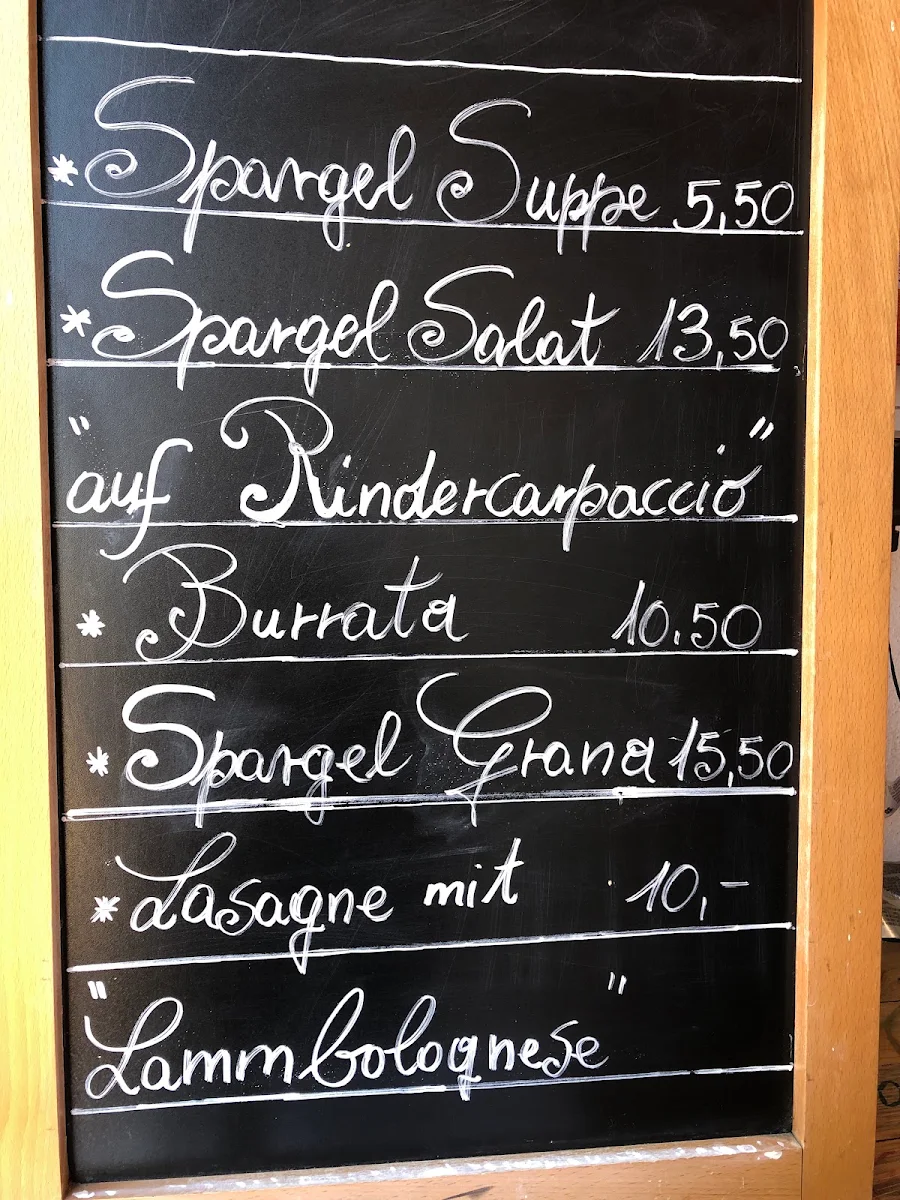 * Spargel Suppe 5,50
* Spargel Salat 13,50
"auf Rindercarpaccio"
* Burrata 10.50
* Spargel Grana 15,50
* Lasagne mit 10,-
"Lammbolognese"